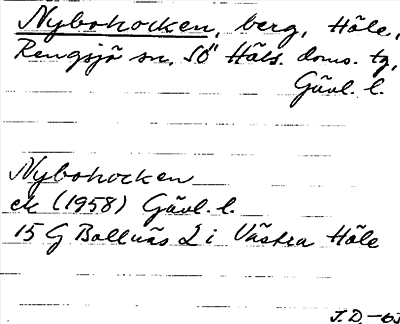 Nybohocken, berg, Häle.,
Rengsjö sn, SÖ Häls. doms. tg,
Gävl. l.
Nybohocken
ek (1958) Gävl. l.
15 G Bollnäs 2 i Västra Häle
J.D. -63